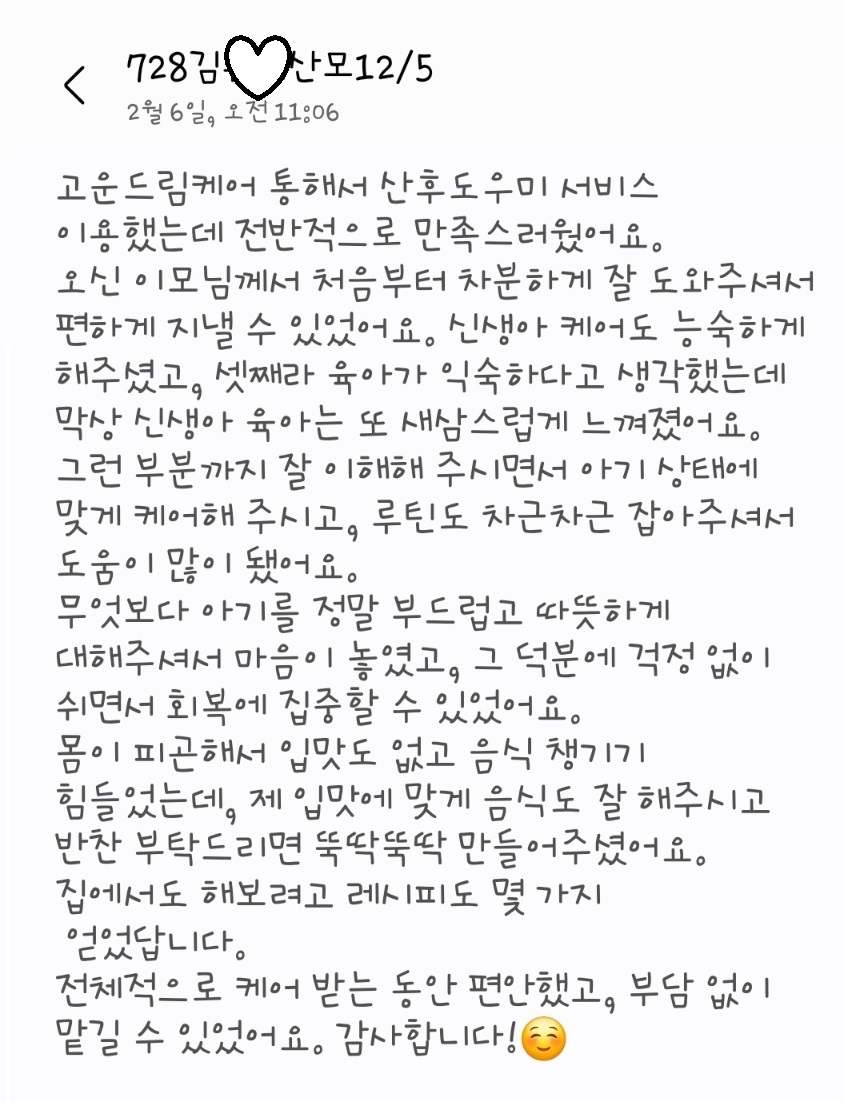 728김 산모12/5
2월 6일, 오전 11:06
고운드림케어 통해서 산후도우미 서비스
이용했는데 전반적으로 만족스러웠어요.
오신 이모님께서 처음부터 차분하게 잘 도와주셔서
편하게 지낼 수 있었어요. 신생아 케어도 능숙하게
해주셨고, 셋째라 육아가 익숙하다고 생각했는데
막상 신생아 육아는 또 새삼스럽게 느껴졌어요.
그런 부분까지 잘 이해해 주시면서 아기 상태에
맞게 케어해 주시고, 루틴도 차근차근 잡아주셔서
도움이 많이 됐어요.
무엇보다 아기를 정말 부드럽고 따뜻하게
대해주셔서 마음이 놓였고, 그 덕분에 걱정 없이
쉬면서 회복에 집중할 수 있었어요.
몸이 피곤해서 입맛도 없고 음식 챙기기
힘들었는데, 제 입맛에 맞게 음식도 잘 해주시고
반찬 부탁드리면 뚝딱뚝딱 만들어주셨어요.
집에서도 해보려고 레시피도 몇 가지
얻었답니다.
전체적으로 케어 받는 동안 편안했고, 부담 없이
맡길 수 있었어요. 감사합니다!☺️